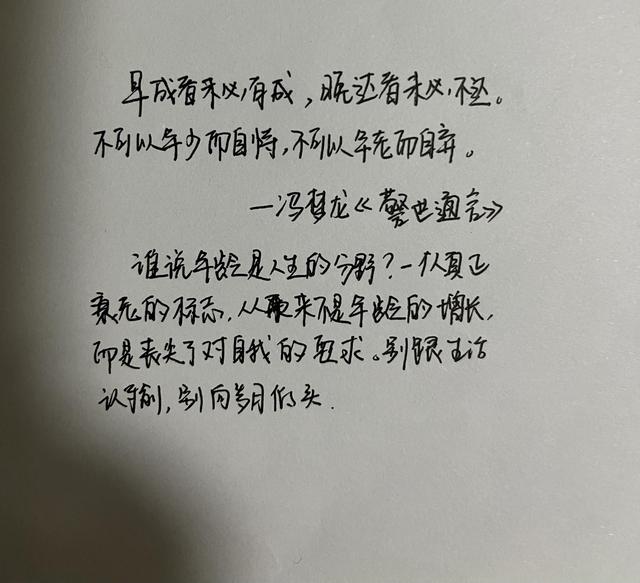 早成者未必有成，晚达者未必不达。
不可以年少而自恃，不可以年老而自弃。
—冯梦龙《警世通言》
谁说年龄是人生的分野？一个人真正
衰老的标志，从来不是年龄的增长，
而是丧失了对自我的要求。别跟生活
认输，别向岁月低头.